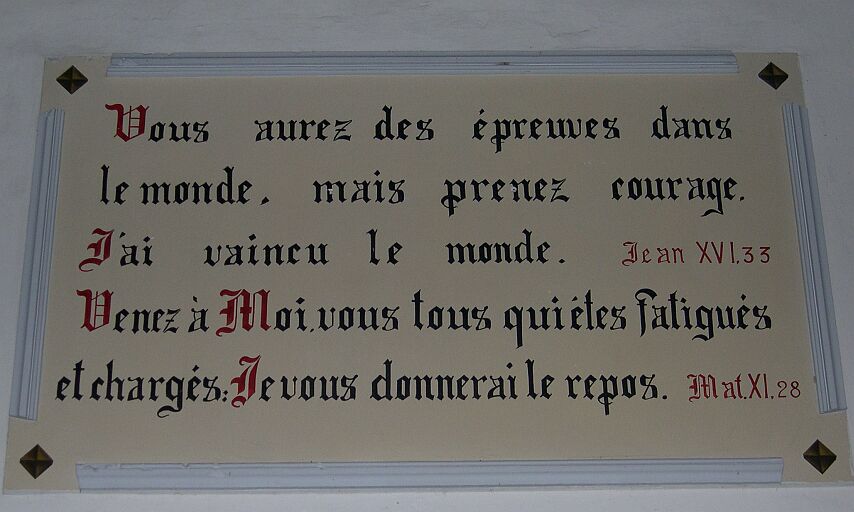 Vous aurez des épreuves dans
le monde, mais prenez courage.
J'ai vaincu le monde. Jean XVI.33
Venez à Moi, vous tous qui étes fatigués
et chargés: Je vous donnerai le repos. Mat.XI.28